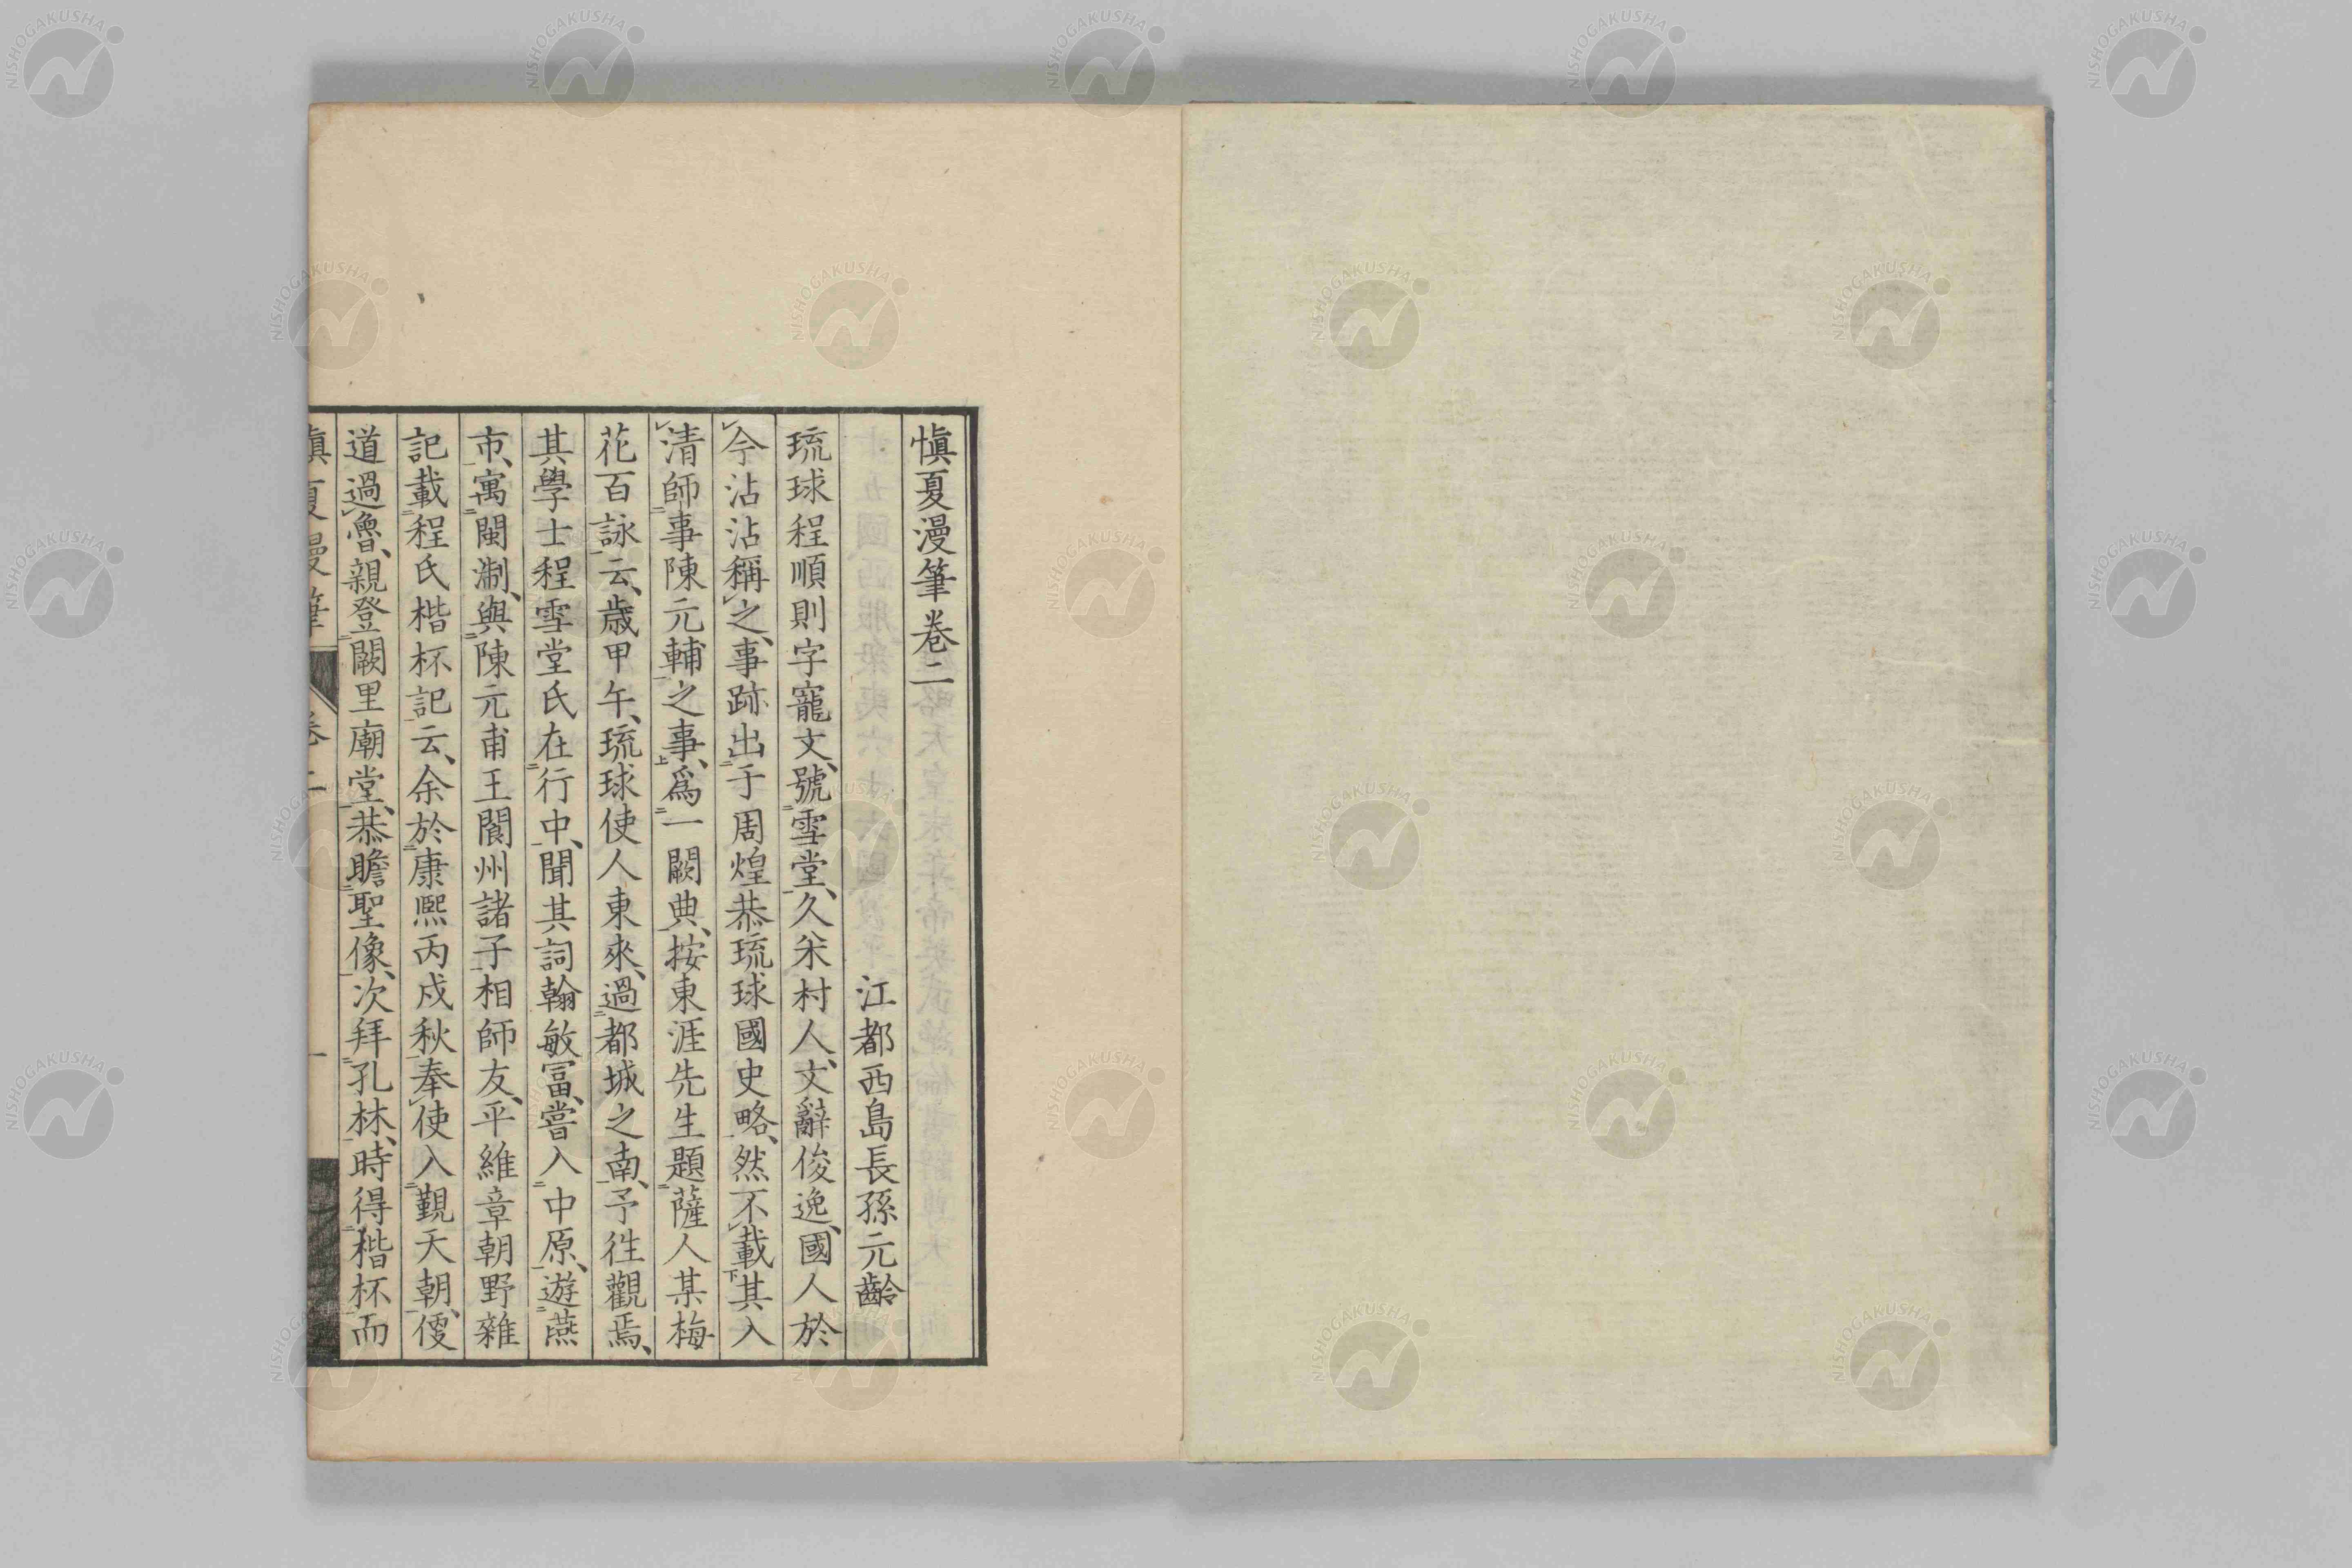 慎夏漫筆卷二
江都西島長孫元齡
琉球程順則字寵文、號雪堂、久米村人、文辭俊逸、國人於
今沾沾稱之、事跡出于周煌恭琉球國史略、然不載其入
清師事陳元輔之事、爲一闕典、按東涯先生題薩人某梅
花百詠云、歲甲午、琉球使人東來、過都城之南、予往觀焉、
其學士程雪堂氏在行中、聞其詞翰敏富、嘗入中原、遊燕
市、寓閩淛、與陳元甫王閬州諸子相師友、平維章朝野雜
記載程氏楷杯記云、余於康熙丙戌秋、奉使入覲天朝、便
道過魯、親登闕里廟堂、恭瞻聖像、次拜孔林、時得楷杯而
慎夏漫筆 卷二 一